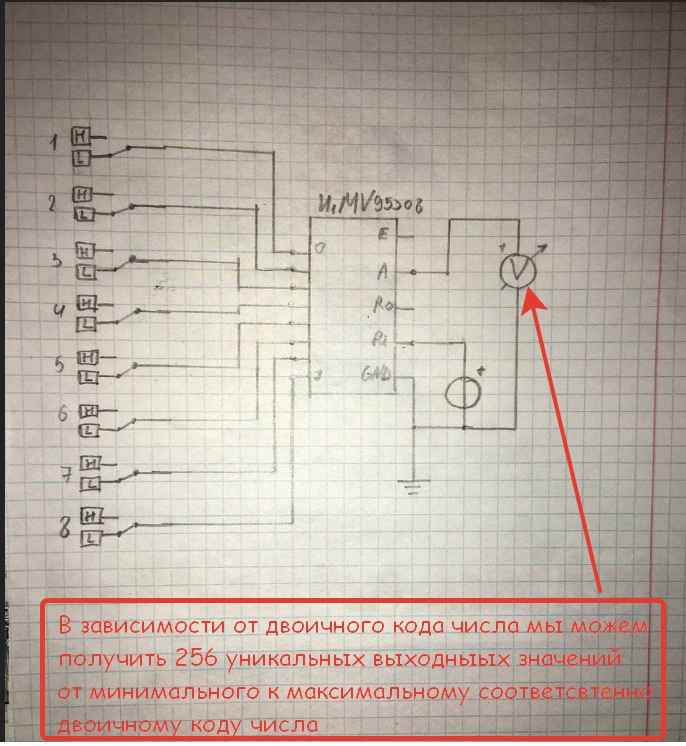 1
H
L
2
H
L
3
H
L
4
H
L
5
H
L
6
H
L
7
H
L
8
H
L
0
E
A
Ro
Ri
GND
V
+
+
В зависимости от двоичного кода числа мы можем
получить 256 уникальных выходныых значений
от минимального к максимальному соответсвтенно
двоичному коду числа